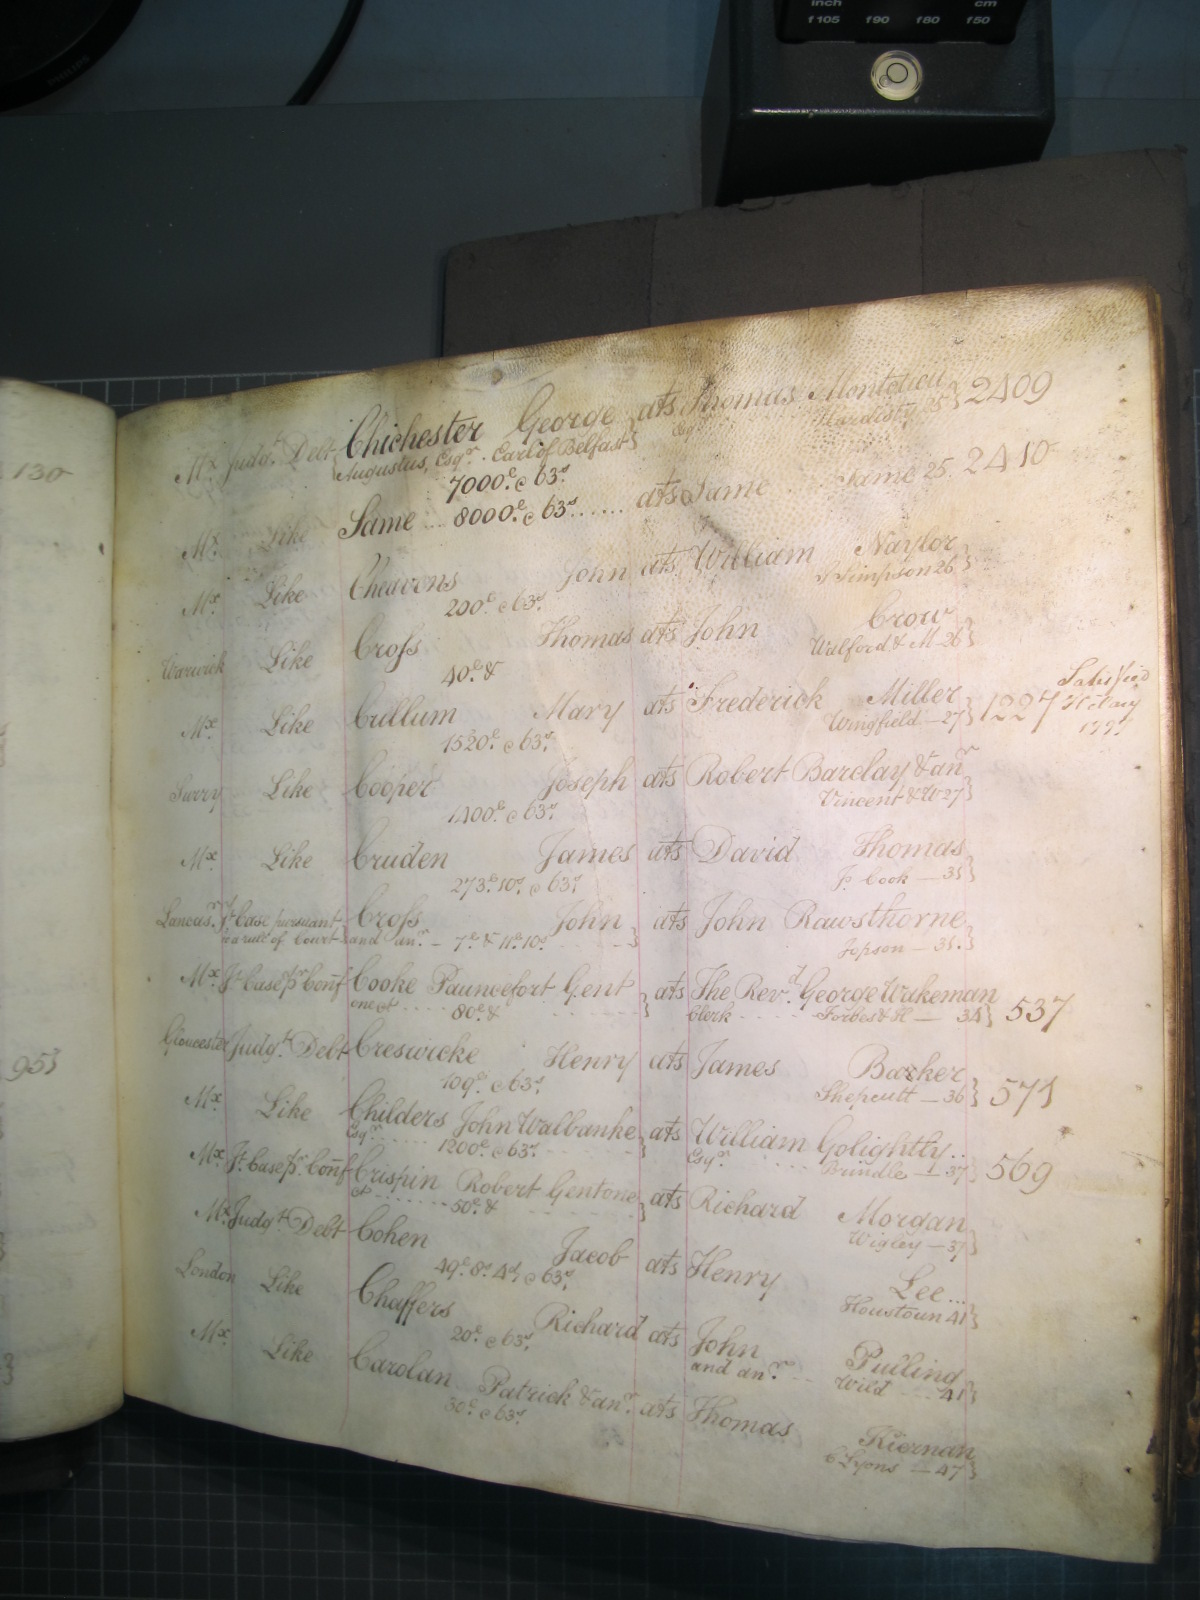 inch cm
f105 f90 f80 f50
PHILIPS
130
953
Mx Judgt. Debt Chichester George ats Thomas Montolieu 2409
Augustus, Esqr. Earl of Belfast Esqr. Hardisty 25
7000£ c 63s.
Mx Like Same ... 8000£ c 63s. ...... ats Same Same 25. 2410
Mx Like Cheavens John ats William Naylor
200£ c 63s. Simpson 26
Warwick Like Cross Thomas ats John Crow
40£ & Walford & M- 26
Mx Like Cullum Mary ats Frederick Miller 1227 Satisfied
1520£ c 63s. Wingfield — 27 Hilary
Surry Like Cooper Joseph ats Robert Barclay & anr
1400£ c 63s. Vincent & W 27
Mx Like Cruden James ats David Thomas
273£ 10s. c 63s. Js. Cook — 35
Lancasr. Jt. Case pursuant Cross John ats John Rawsthorne
to a rule of Court and anr. - 7£ & 11£ 10s Jopson — 35.
Mx Jt. Case pr. Conf Cooke Pauncefort Gent ats The Revd. George Wakeman 537
one et .... 80£ & Clerk .... Forbes & H — 34
Gloucester Judgt. Debt Creswicke Henry ats James Barker 571
109£ c 63s. Shepcutt — 36
Mx Like Childers John Walbanke ats William Golightly .. 569
Esqr. ...... 1200£ c 63s. Esqr. .... Brindle — 37
Mx Jt. Case pr. Conf Crispin Robert Gentone ats Richard Morgan
et ........ 50£ & Wigley — 37
Mx Judgt. Debt Cohen Jacob ats Henry Lee ...
49£ 8s. 4d, c 63s. Houstoun 41
London Like Chaffers Richard ats John Pulling
20£ c 63s. and anr. .. Wild .... 41
Mx Like Carolan Patrick & anr. ats Thomas Kiernan
30£ c 63s. C Lyons — 47